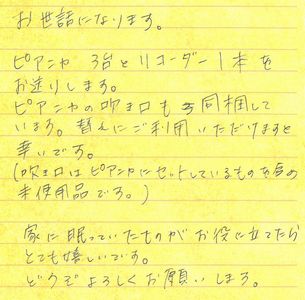 お世話になります。
ピアニカ 3台とリコーダー1本を
お送りします。
ピアニカの吹き口も 5同梱して
います。替えにご利用いただけますと
幸いです。
(吹き口はピアニカにセットしているものを含め
未使用品です。)
家に眠っていたものがお役に立てたら
とても嬉しいです。
どうぞよろしくお願いします。